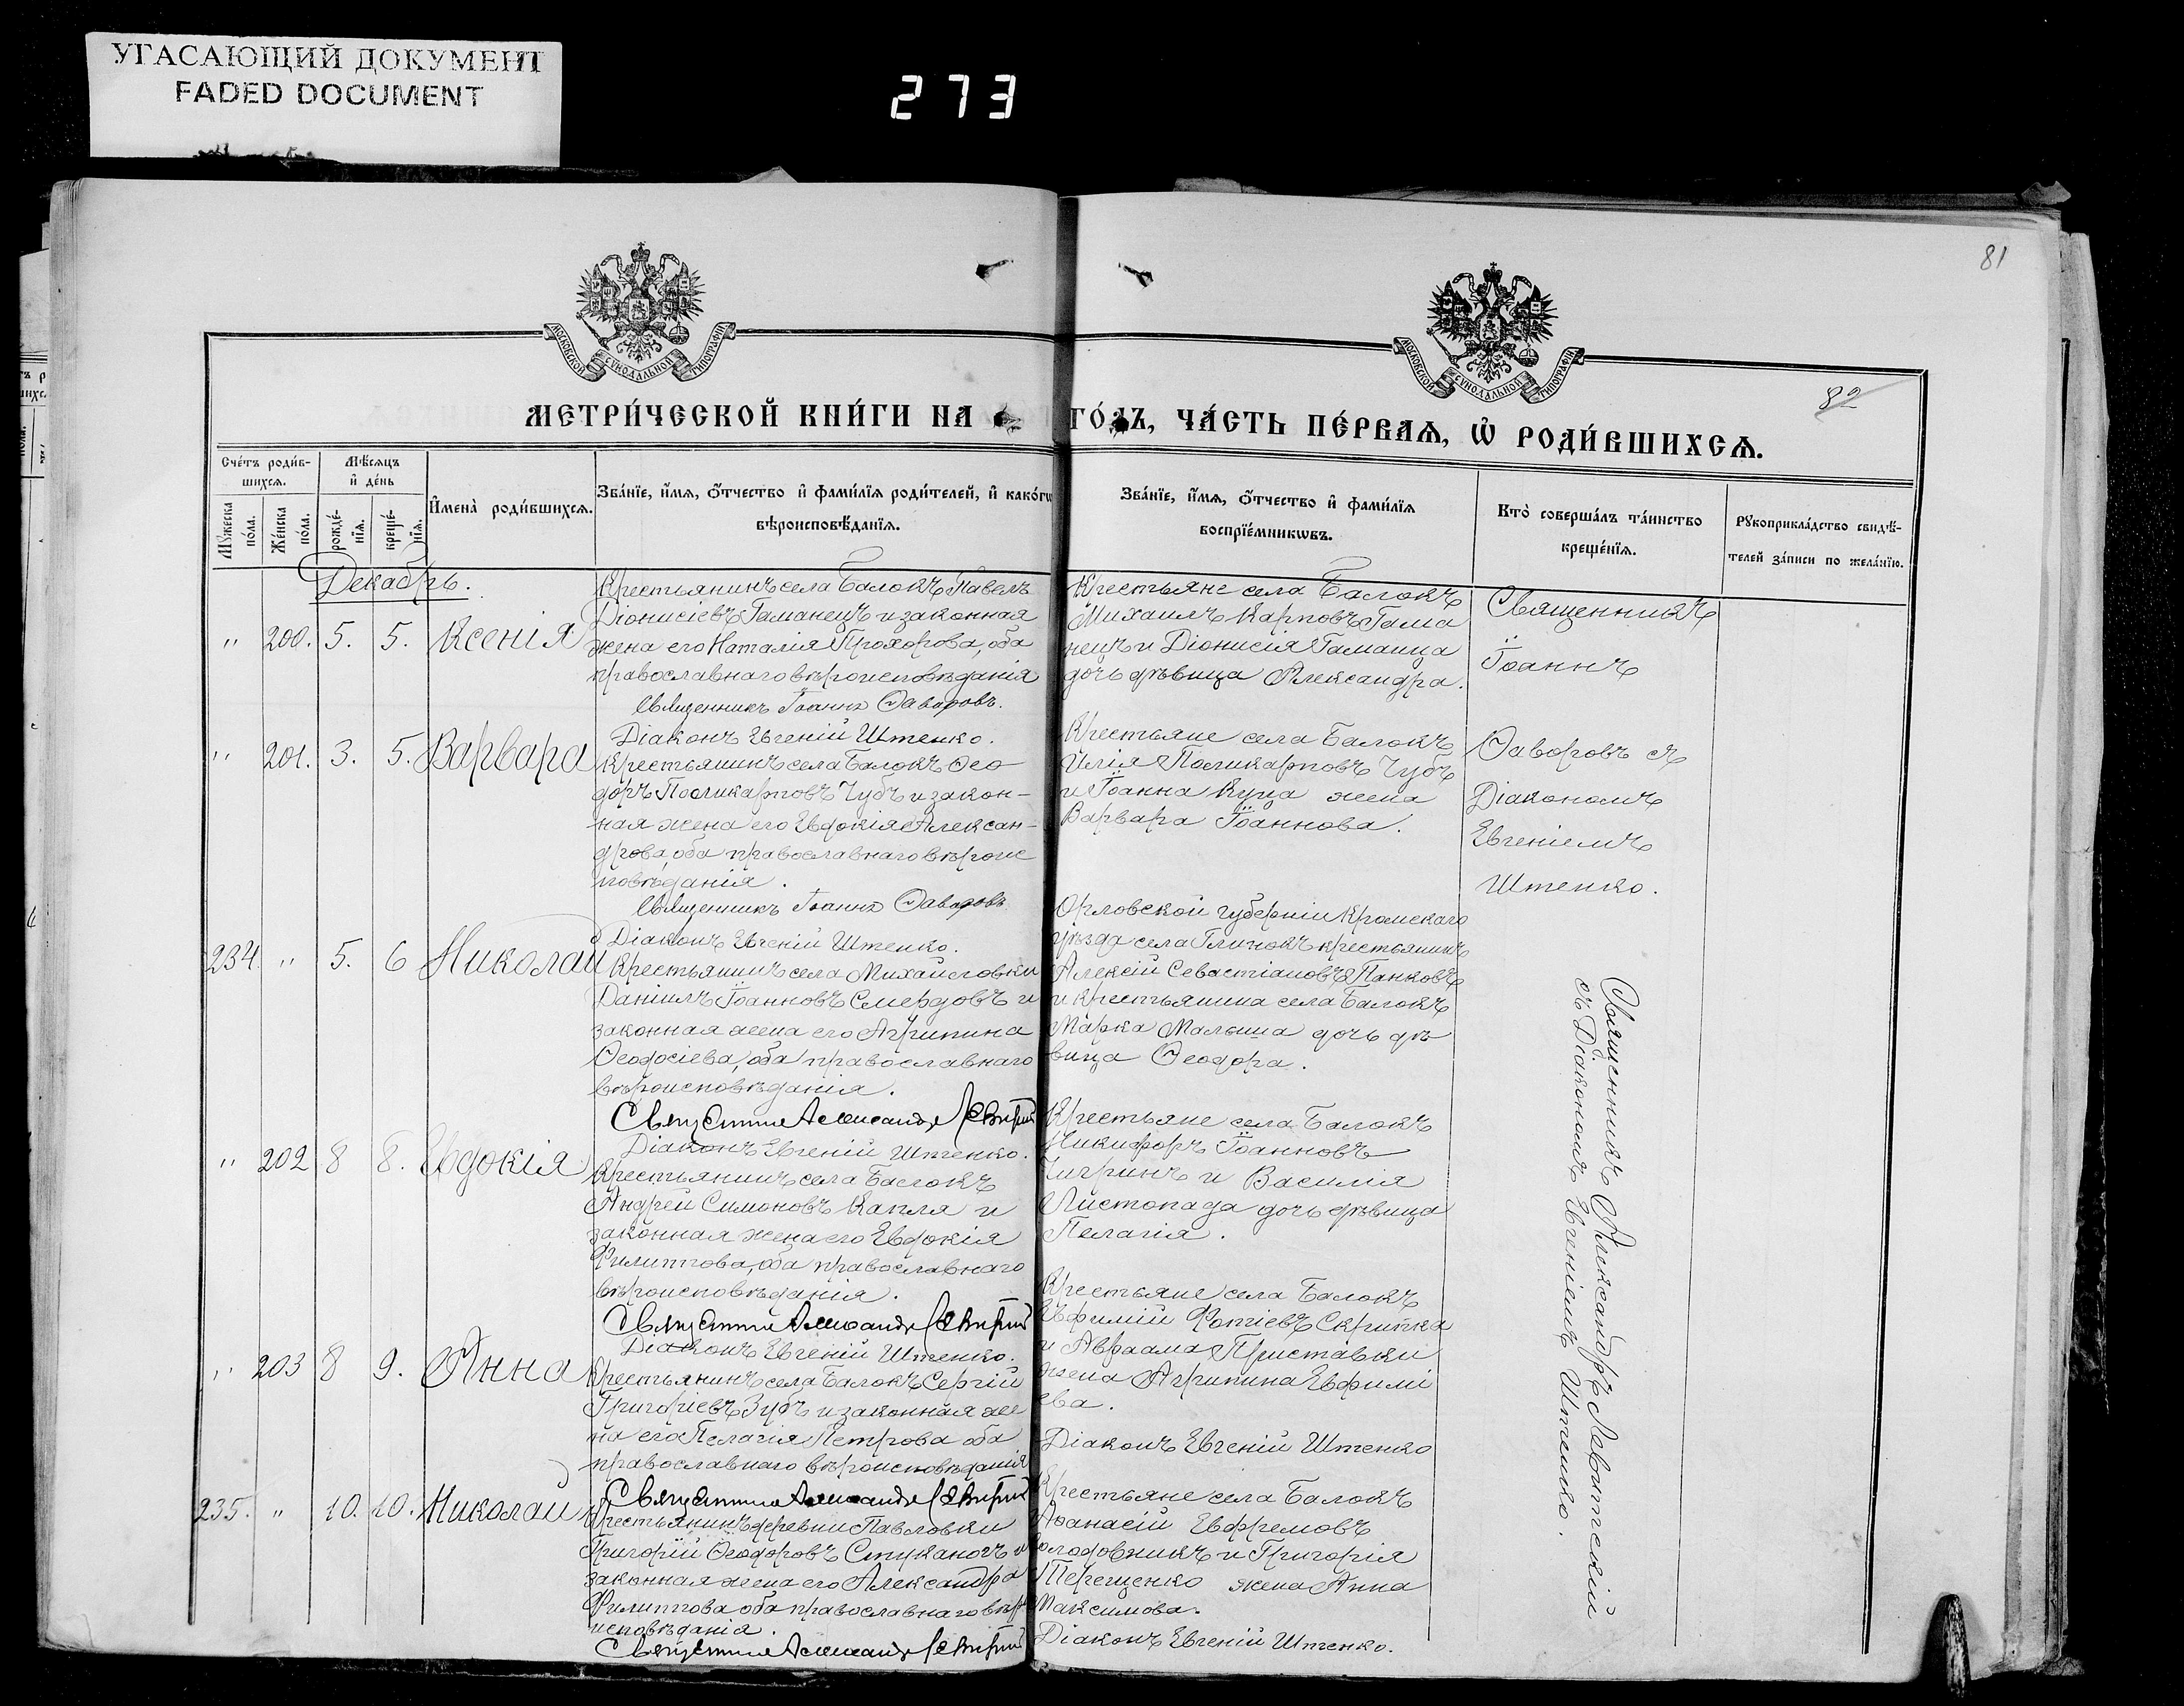 УГАСАЮЩИЙ ДОКУМЕНТ
FADED DOCUMENT
273
81
82
МОСКОВСКОЙ СѴНОДАЛЬНОЙ ТИПОГРАФІИ
МОСКОВСКОЙ СѴНОДАЛЬНОЙ ТИПОГРАФІИ
МЕТРИ́ЧЕСКОЙ КНИ́ГИ НА ГО́ДЪ, ЧА́СТЬ ПЕ́РВАѦ, Ѡ҆ РОДИ́ВШИХСѦ.
Сче́тъ роди́в-
шихсѧ.
Мꙋжеска по́ла.
Же́нска по́ла.
Мѣ́сѧцъ
и҆ де́нь
рожде́-
нїѧ.
креще́-
нїѧ.
И҆мена̀ роди́вшихсѧ.
Зва́нїе, и҆́мѧ, ѻ҆́тчество и҆ фами́лїѧ роди́телей, и҆ како́гѡ
вѣроисповѣ́данїѧ.
Зва́нїе, и҆́мѧ, ѻ҆́тчество и҆ фами́лїѧ
воспрїе́мникѡвъ.
Кто̀ соверша́лъ та́инство
креще́нїѧ.
Рꙋкоприкла́дство свидѣ́-
телей за́писи по жела́нїю.
Декабрь.
" 200. 5. 5. Ксенія
Крестьянинъ села Балокъ Павелъ
Діонисіевъ Гаманецъ и законная
жена его Наталія Прохорова, оба
православнаго вѣроисповѣданія
Священникъ Іоаннъ Ѳаворовъ.
Діаконъ Евгеній Штенко.
Крестьяне села Балокъ
Михаилъ Карповъ Гама
нецъ и Діонисія Гаманца
дочь дѣвица Александра.
Священникъ
Іоаннъ
Ѳаворовъ съ
Діакономъ
Евгеніемъ
Штенко.
" 201. 3. 5. Варвара
Крестьянинъ села Балокъ Ѳео
доръ Поликарповъ Чубъ и закон-
ная жена его Евдокія Алексан-
дрова, оба православнаго вѣроис
повѣданія.
Священникъ Іоаннъ Ѳаворовъ
Діаконъ Евгеній Штенко.
Крестьяне села Балокъ
Илія Поликарповъ Чубъ
и Іоанна Куца жена
Варвара Іоаннова.
234. " 5. 6 Николай
Крестьянинъ села Михайловки
Даніилъ Іоанновъ Смердовъ и
законная жена его Агрипина
Ѳеодосіева, оба православнаго
вѣроисповѣданія.
Александр
Діаконъ Евгеній Штенко.
Орловской губерніи Кромскаго
уѣзда села Глинокъ крестьянинъ
Алексій Севастіановъ Панковъ
и крестьянина села Балокъ
Марка Малыша дочь дѣ
вица Ѳеодора.
Священникъ Александръ Левитскій
съ Діакономъ Евгеніемъ Штенко.
" 202 8 8. Евдокія
Крестьянинъ села Балокъ
Андрей Симоновъ Капля и
законная жена его Евдокія
Филиппова, оба православнаго
вѣроисповѣданія.
Александр
Діаконъ Евгеній Штенко.
Крестьяне села Балокъ
Никифоръ Іоанновъ
Чигринъ и Василія
Листопада дочь дѣвица
Пелагія.
" 203 8 9. Анна
Крестьянинъ села Балокъ Сергій
Григоріевъ Зубъ и законная же
на его Пелагія Петрова оба
православнаго вѣроисповѣданія
Александр
Крестьяне села Балокъ
Евфимій Фотіевъ Скрипка
и Авраама Приставки
жена Агрипина Евфимі
ева.
Діаконъ Евгеній Штенко
235. " 10. 10. Николай
Крестьянинъ деревни Павловки
Григорій Ѳеодоровъ Стукановъ и
законная жена его Александра
Филиппова оба православнаго вѣро
исповѣданія.
Александр
Крестьяне села Балокъ
Аѳанасій Ефремовъ
Колодовникъ и Григорія
Терещенко жена Анна
Максимова.
Діаконъ Евгеній Штенко.